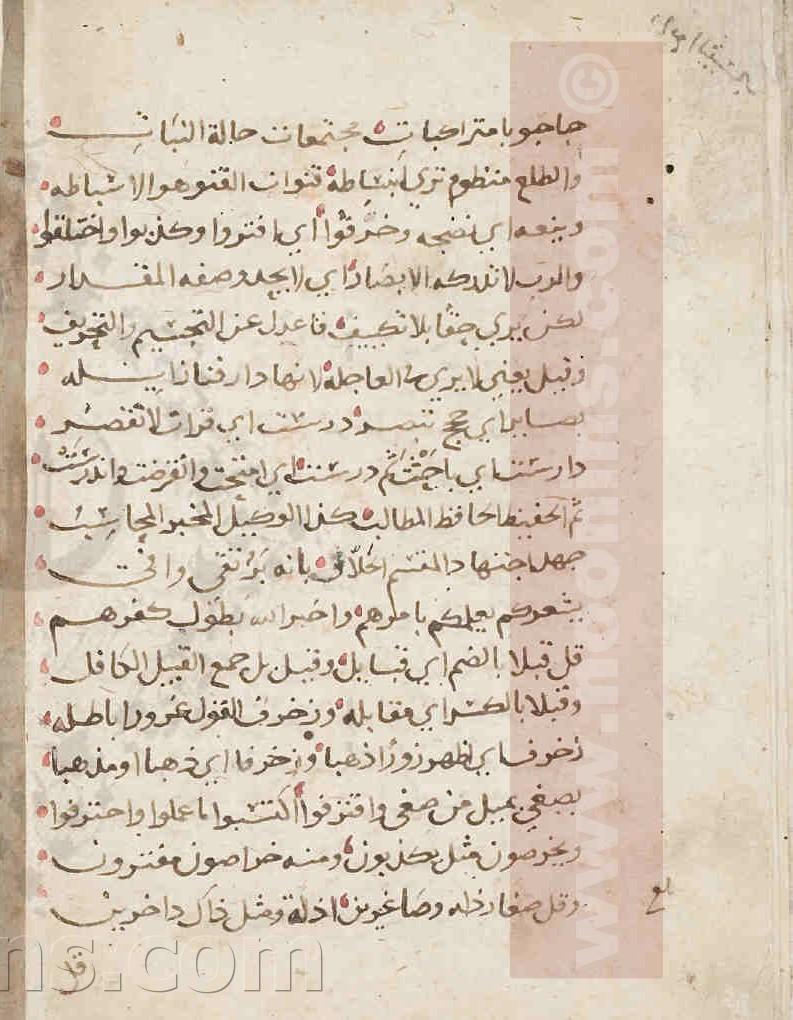 جاجوبا متراكبات مجتمعات حالة النبات
والطلع منظوم ترى انبساطه قنوان القنو هو الاشباطه
وينعه اي نضجه وخرقوا أي افتروا وكذبوا واختلقوا
والرب لا تدركه الابصار اي لا يجد وصفه المقدار
لكن يري حقا بلا تكييف فاعدل عن التجسيم والتحريف
وقيل يعني لا يرى في العاجله لانها دار فنا زايله
بصاير اي حجج تبصر درست اي قرات لا تقصر
دارست اي باحثت ثم درست اي امتحت وانقرضت واندرست
ثم الحفيظ الحافظ المطالب كذا الوكيل المخبر المحاسب
جهد اجتهاد المقسم الحلاف بانه بر تقي وافي
يشعركم يعلمكم بامرهم واخبر الله بطول كفرهم
قل قبلا بالضم اي قبايل وقيل بل جمع القبيل الكافل
وقبلا بالكسر اي مقابله وزخرف القول غرورا باطله
زخرف اي اظهر زورا ذهبا وزخرفا اي ذهبا او مذهبا
يصغي يميل من صغى واقترفوا اكتسبوا ما عملوا واحترفوا
ويخرصون مثل يكذبون ومنه خراصون مفترون
وقل صغار ذله وصاغرين اذلة ومثل ذاك داخرين
بلغ
www.noormins.com ©
ns.com